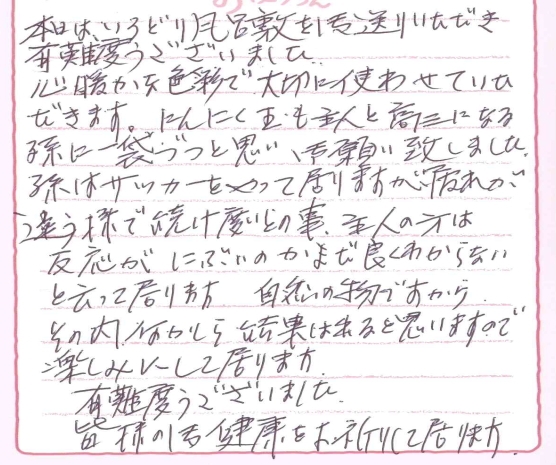 本日は、いろどり風呂敷を御送りいただき
有難度うございました。
心暖かな色彩で大切に使わせていた
だきます。にんにく玉も主人と高三になる
孫に一袋づつと思い、御願い致しました。
孫はサッカーをやって居りますが、疲れが
違う様で続け度いとの事、主人の方は
反応がにぶいのかまだ良くわからない
と云って居ります 自然の物ですから
その内何かしら結果は出ると思いますので
楽しみにして居ります。
有難度うございました。
皆様の御健康をお祈りして居ります。